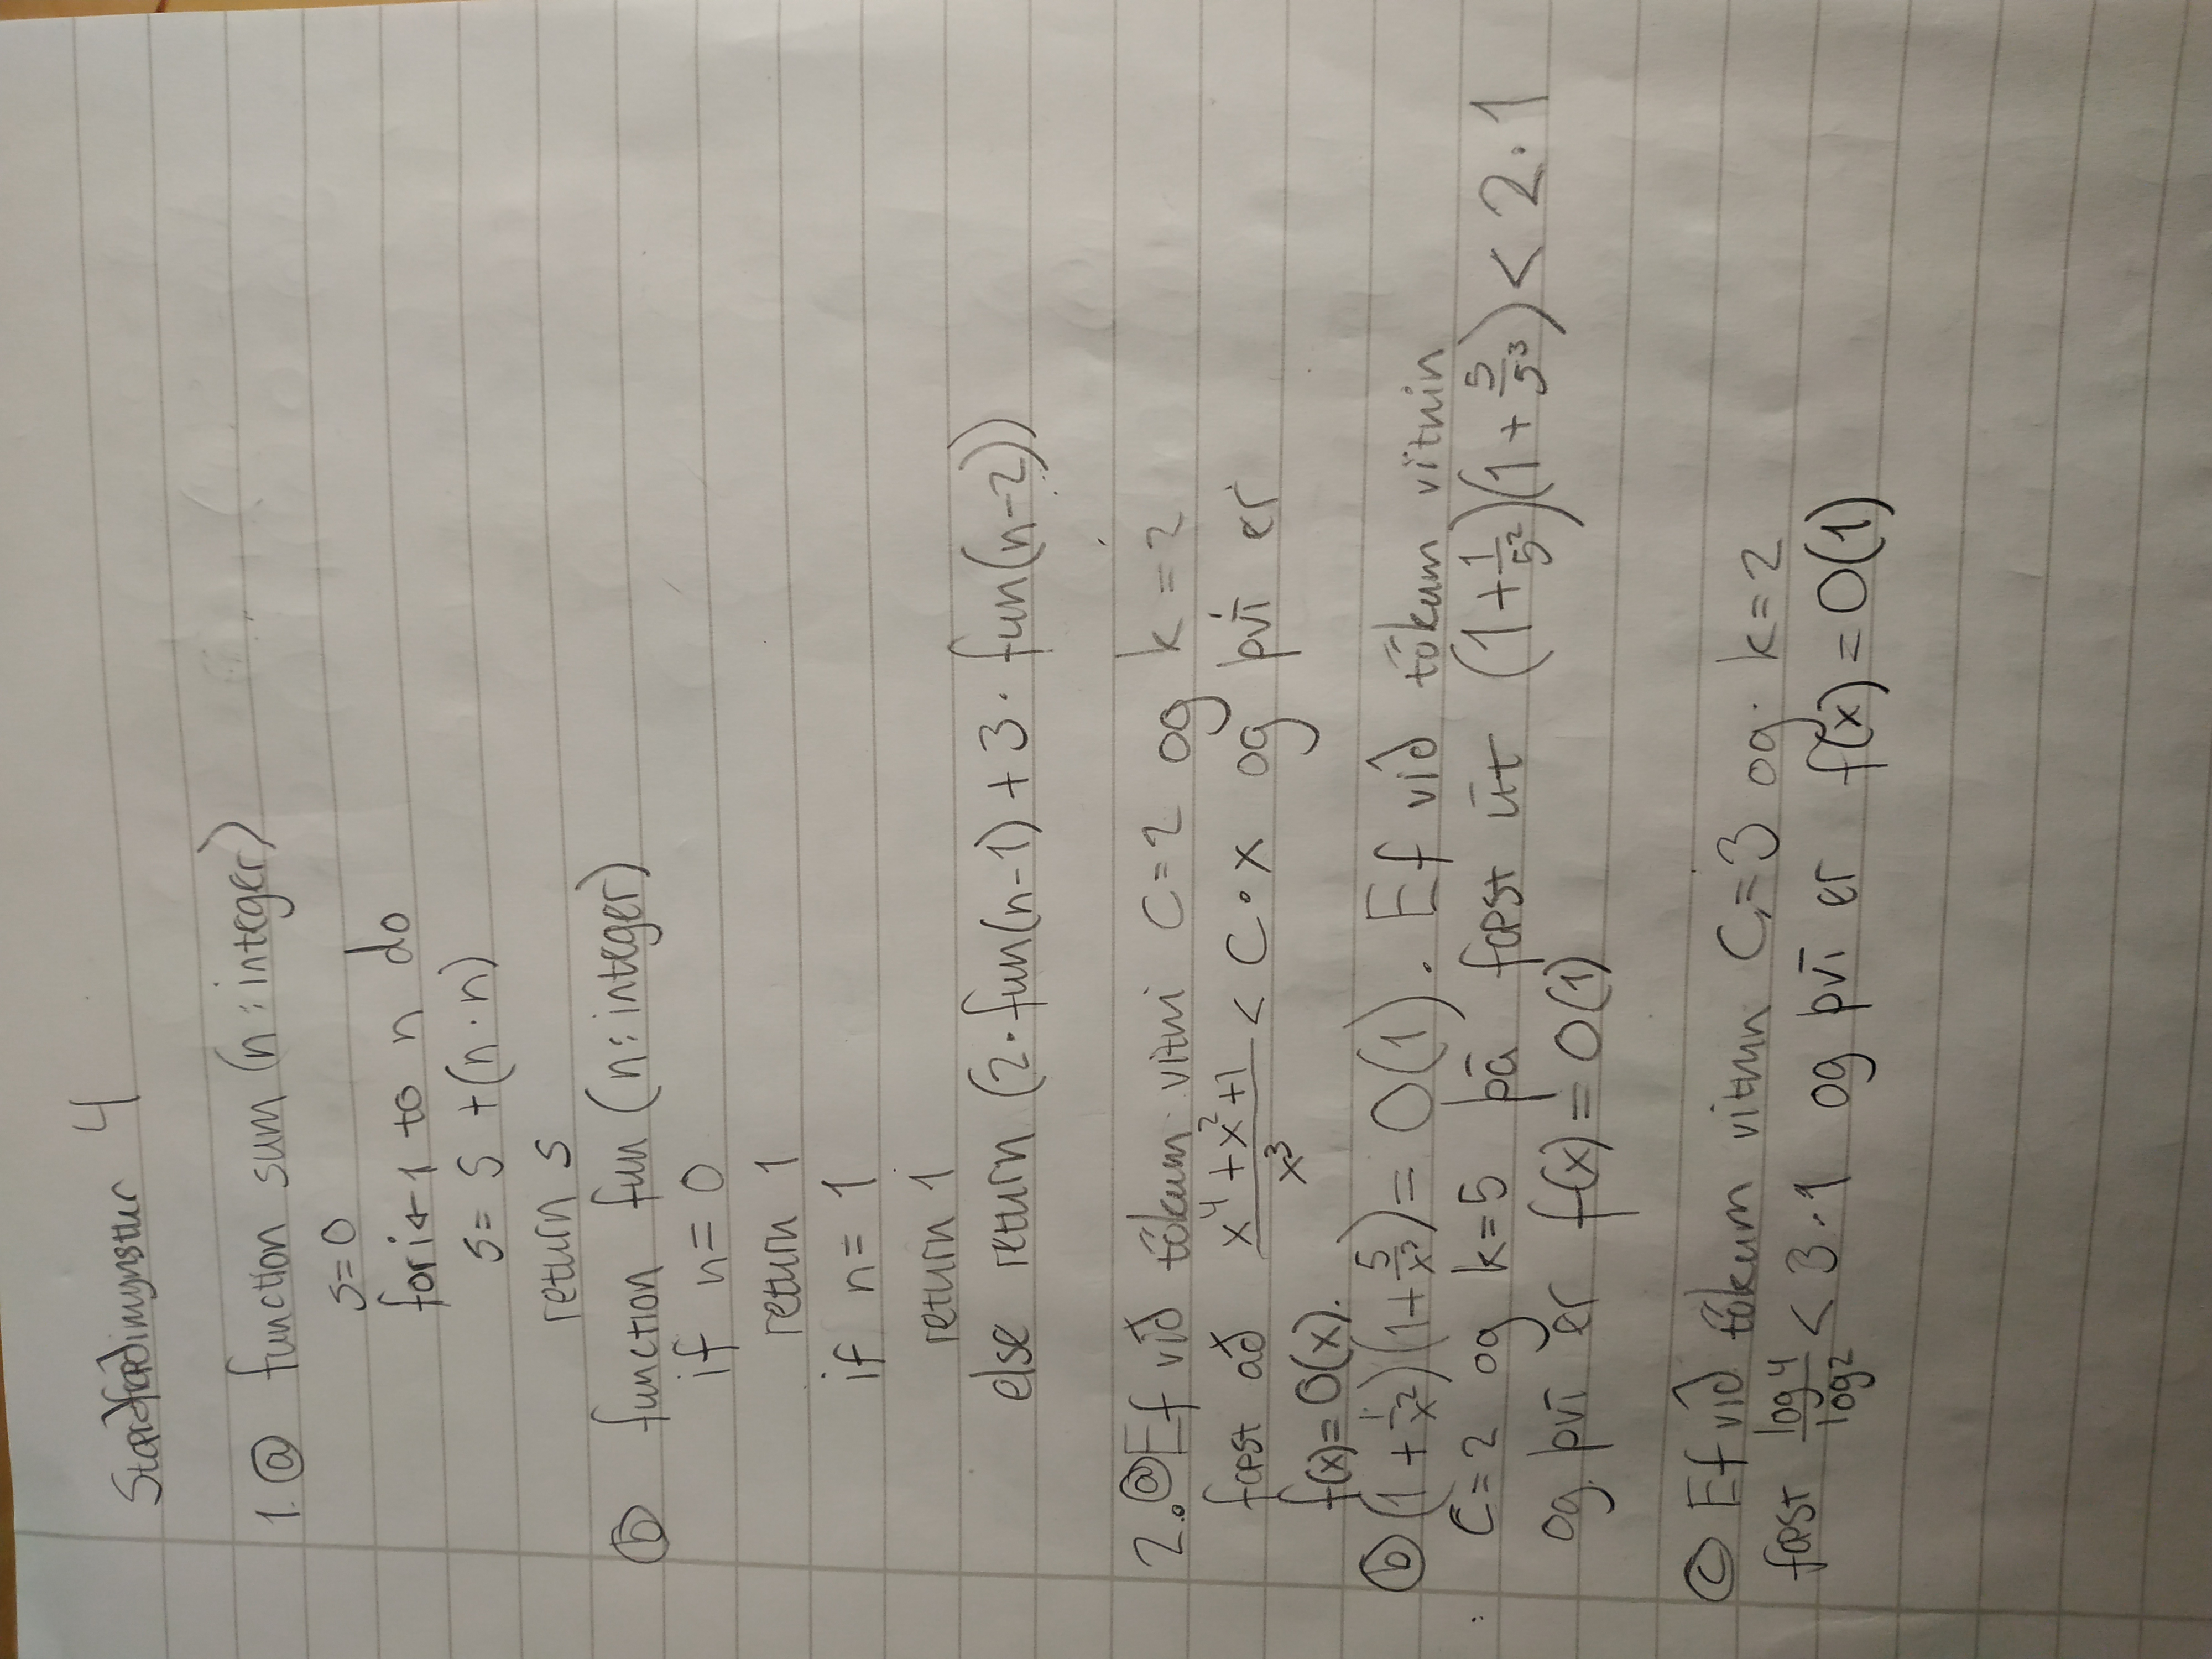 Stærðfræðimynstur 4
1. ⓐ function sum (n : integer)
s=0
for i ← 1 to n do
s = s + (n · n)
return s
ⓑ function fun (n : integer)
if n = 0
return 1
if n = 1
return 1
else return (2 · fun(n-1) + 3 · fun(n-2))
2. ⓐ Ef við tökum vitni C = 2 og k = 2
fæst að (x⁴ + x² + 1)/x³ < C · x og því er
f(x) = O(x).
ⓑ (1 + 1/x²)(1 + 5/x³) = O(1). Ef við tökum vitnin
C = 2 og k = 5 þá fæst út (1 + 1/5²)(1 + 5/5³) < 2 · 1
og því er f(x) = O(1)
ⓒ Ef við tökum vitnin C = 3 og k = 2
fæst log4/log2 < 3 · 1 og því er f(x) = O(1)